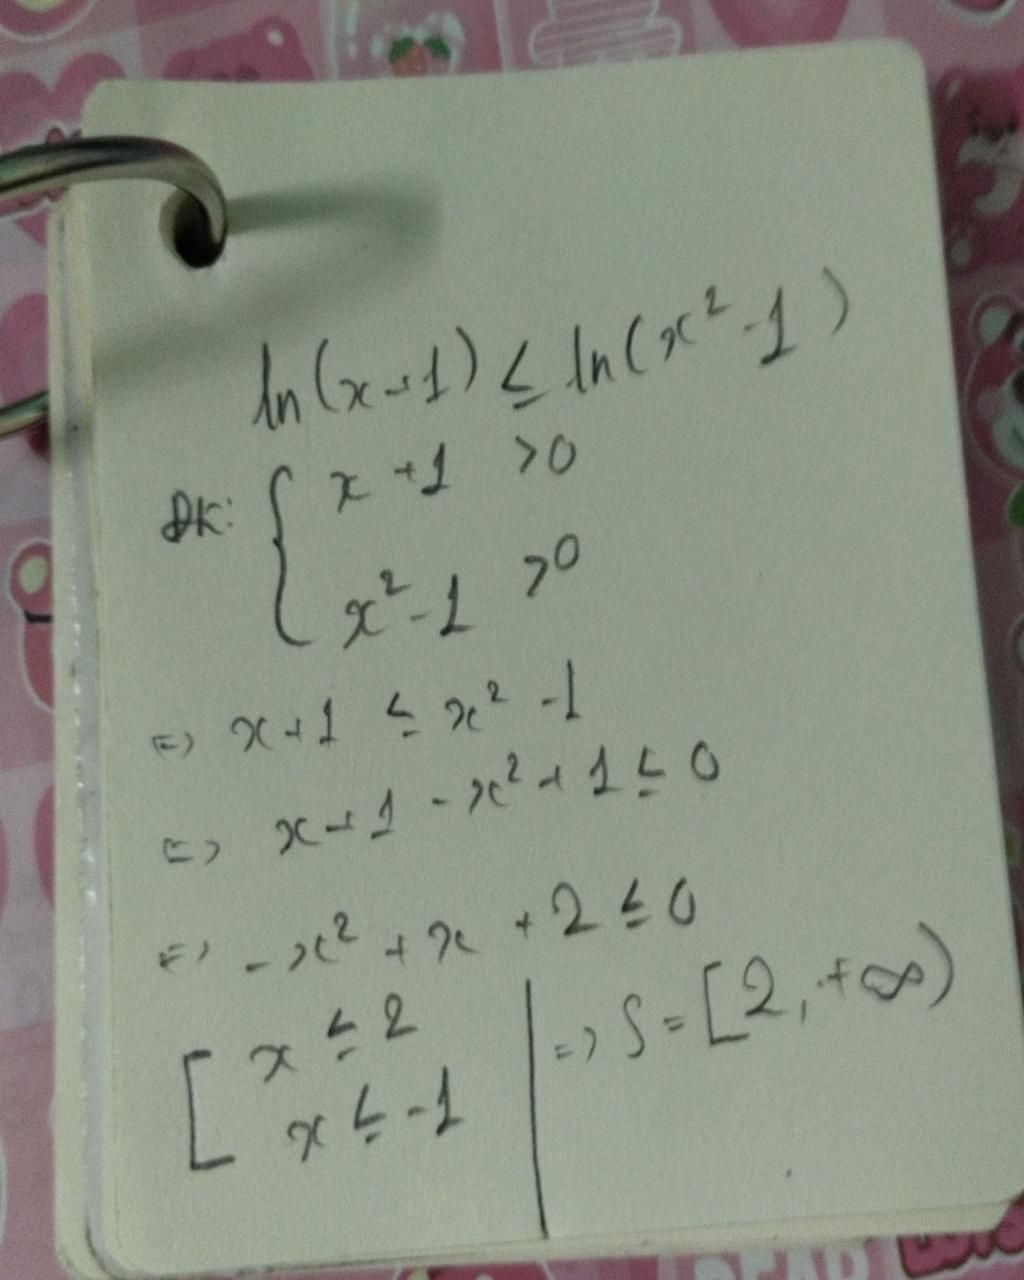 ln(x+1) ≤ ln(x² -1)
ĐK: { x +1 >0
x² -1 >0
=> x+1 ≤ x² -1
=> x+1 - x² + 1 ≤ 0
=> -x² + x + 2 ≤ 0
[ x ≤ 2
x ≤ -1
=> S = [2, +∞)